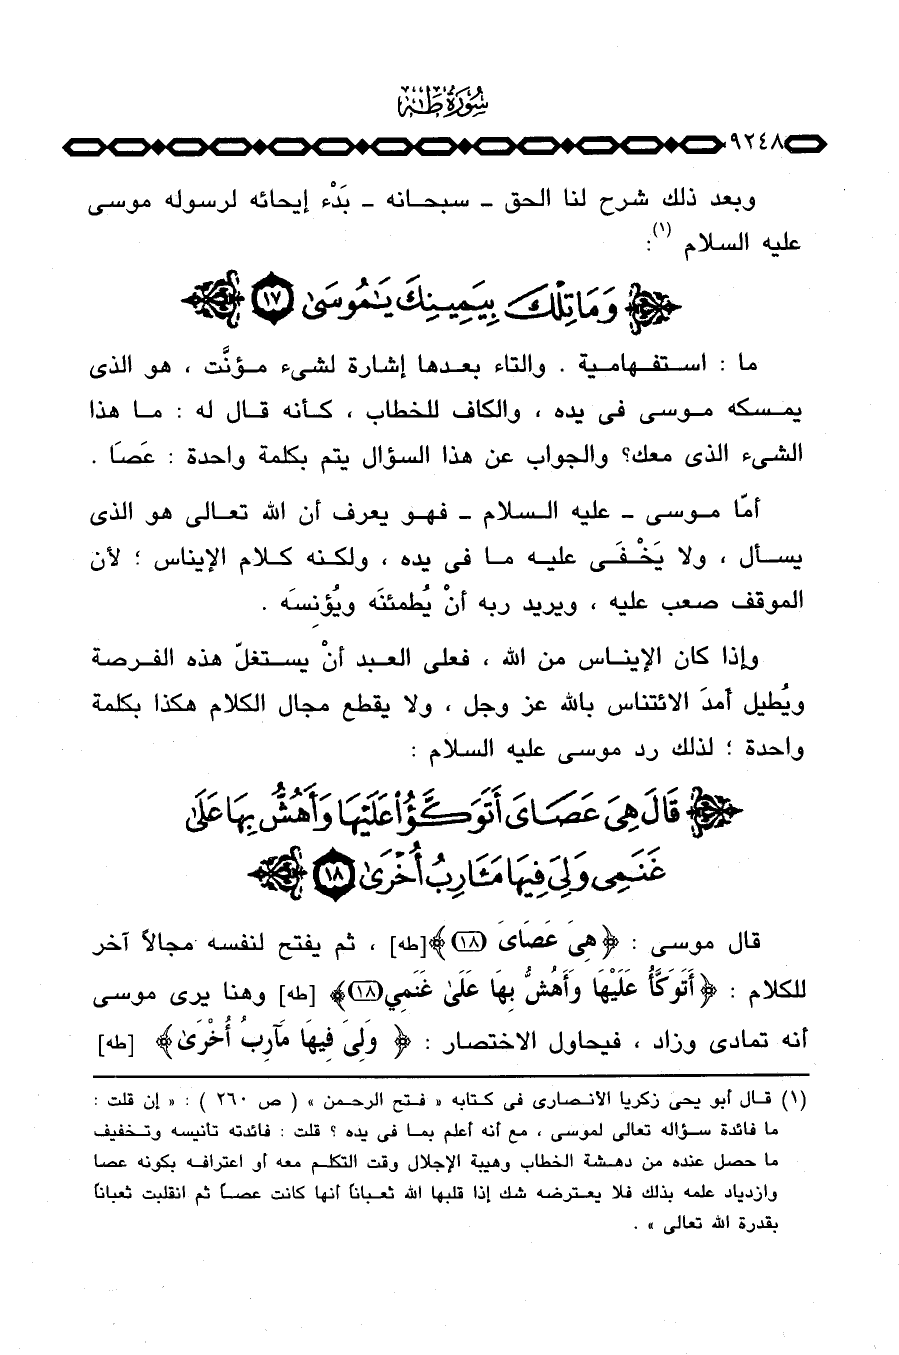 سُورَةُ طٰهٰ
٩٢٤٨
وبعد ذلك شرح لنا الحق ـ سبحانه ـ بَدْء إيحائه لرسوله موسى
عليه السلام (١):
وَمَا تِلْكَ بِيَمِينِكَ يَٰمُوسَىٰ ١٧
ما : استفهامية . والتاء بعدها إشارة لشىء مؤنَّث ، هو الذى
يمسكه موسى فى يده ، والكاف للخطاب ، كأنه قال له : ما هذا
الشىء الذى معك؟ والجواب عن هذا السؤال يتم بكلمة واحدة : عَصَا .
أمّا موسى ـ عليه السلام ـ فهو يعرف أن الله تعالى هو الذى
يسأل ، ولا يَخْفَى عليه ما فى يده ، ولكنه كلام الإيناس ؛ لأن
الموقف صعب عليه ، ويريد ربه أنْ يُطمئنَه ويُؤنِسَه .
وإذا كان الإيناس من الله ، فعلى العبد أنْ يستغلّ هذه الفرصة
ويُطيل أمدَ الائتناس بالله عز وجل ، ولا يقطع مجال الكلام هكذا بكلمة
واحدة ؛ لذلك رد موسى عليه السلام :
قَالَ هِيَ عَصَايَ أَتَوَكَّؤُا عَلَيْهَا وَأَهُشُّ بِهَا عَلَىٰ
غَنَمِى وَلِيَ فِيهَا مَـَٔارِبُ أُخْرَىٰ ١٨
قال موسى : ﴿ هِيَ عَصَايَ (١٨) ﴾[طه] ، ثم يفتح لنفسه مجالاً آخر
للكلام : ﴿ أَتَوَكَّأُ عَلَيْهَا وَأَهُشُّ بِهَا عَلَىٰ غَنَمِي(١٨)﴾ [طه] وهنا يرى موسى
أنه تمادى وزاد ، فيحاول الاختصار : ﴿ وَلِيَ فِيهَا مَآرِبُ أُخْرَىٰ﴾ [طه]
(١) قال أبو يحى زكريا الأنصارى فى كتابه « فتح الرحمن » ( ص ٢٦٠ ) : « إن قلت :
ما فائدة سؤاله تعالى لموسى ، مع أنه أعلم بما فى يده ؟ قلت : فائدته تأنيسه وتخفيف
ما حصل عنده من دهشة الخطاب وهيبة الإجلال وقت التكلم معه أو اعترافه بكونه عصا
وازدياد علمه بذلك فلا يعترضه شك إذا قلبها الله ثعباناً أنها كانت عصاً ثم انقلبت ثعباناً
بقدرة الله تعالى » .